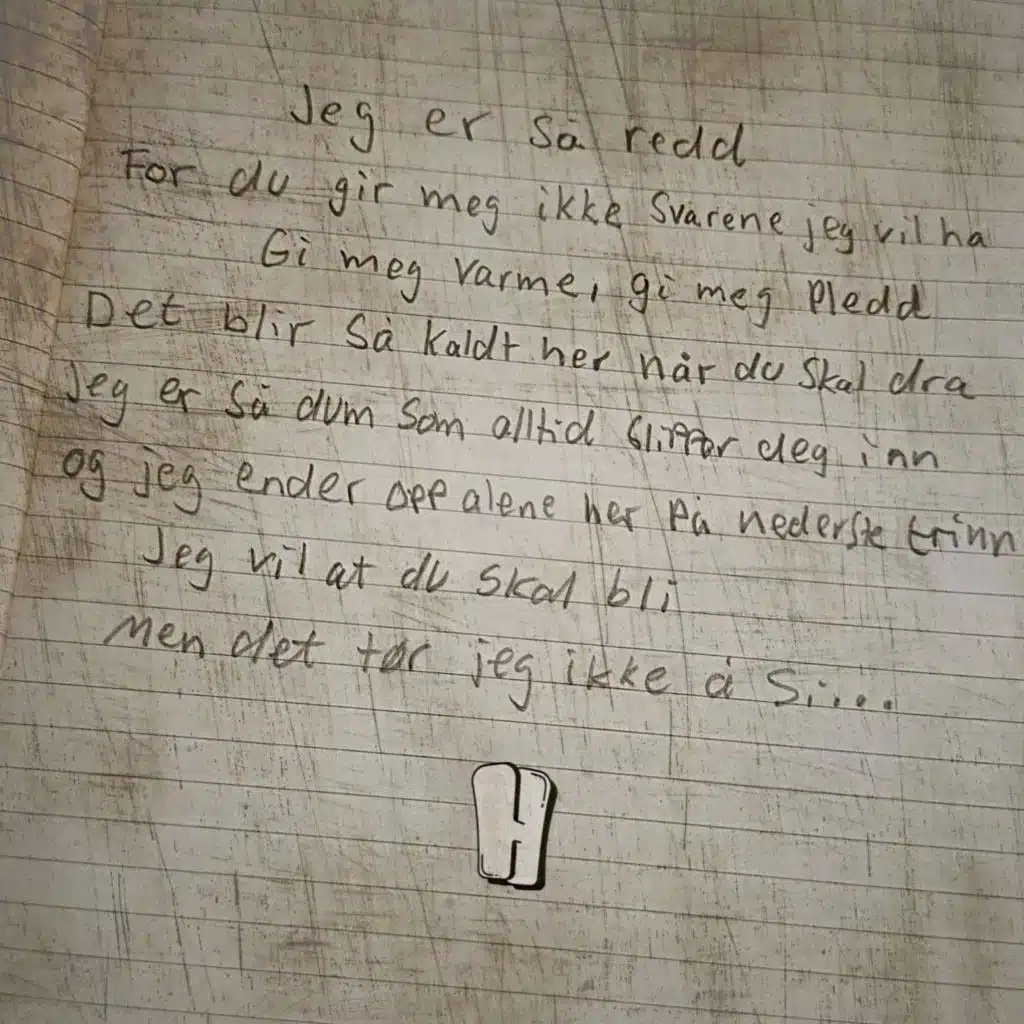 Jeg er så redd
For du gir meg ikke svarene jeg vil ha
Gi meg varme, gi meg pledd
Det blir så kaldt her når du skal dra
Jeg er så dum som alltid slipper deg inn
og jeg ender opp alene her på nederste trinn
Jeg vil at du skal bli
Men det tør jeg ikke å si...
H